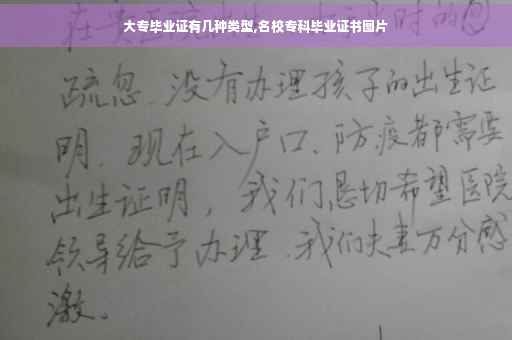 大专毕业证有几种类型,名校专科毕业证书图片
疏忽.没有办理孩子的出生证
明.现在入户口、防疫都需要
出生证明，我们恳切希望医院
领导给予办理.我们夫妻万分感
激。